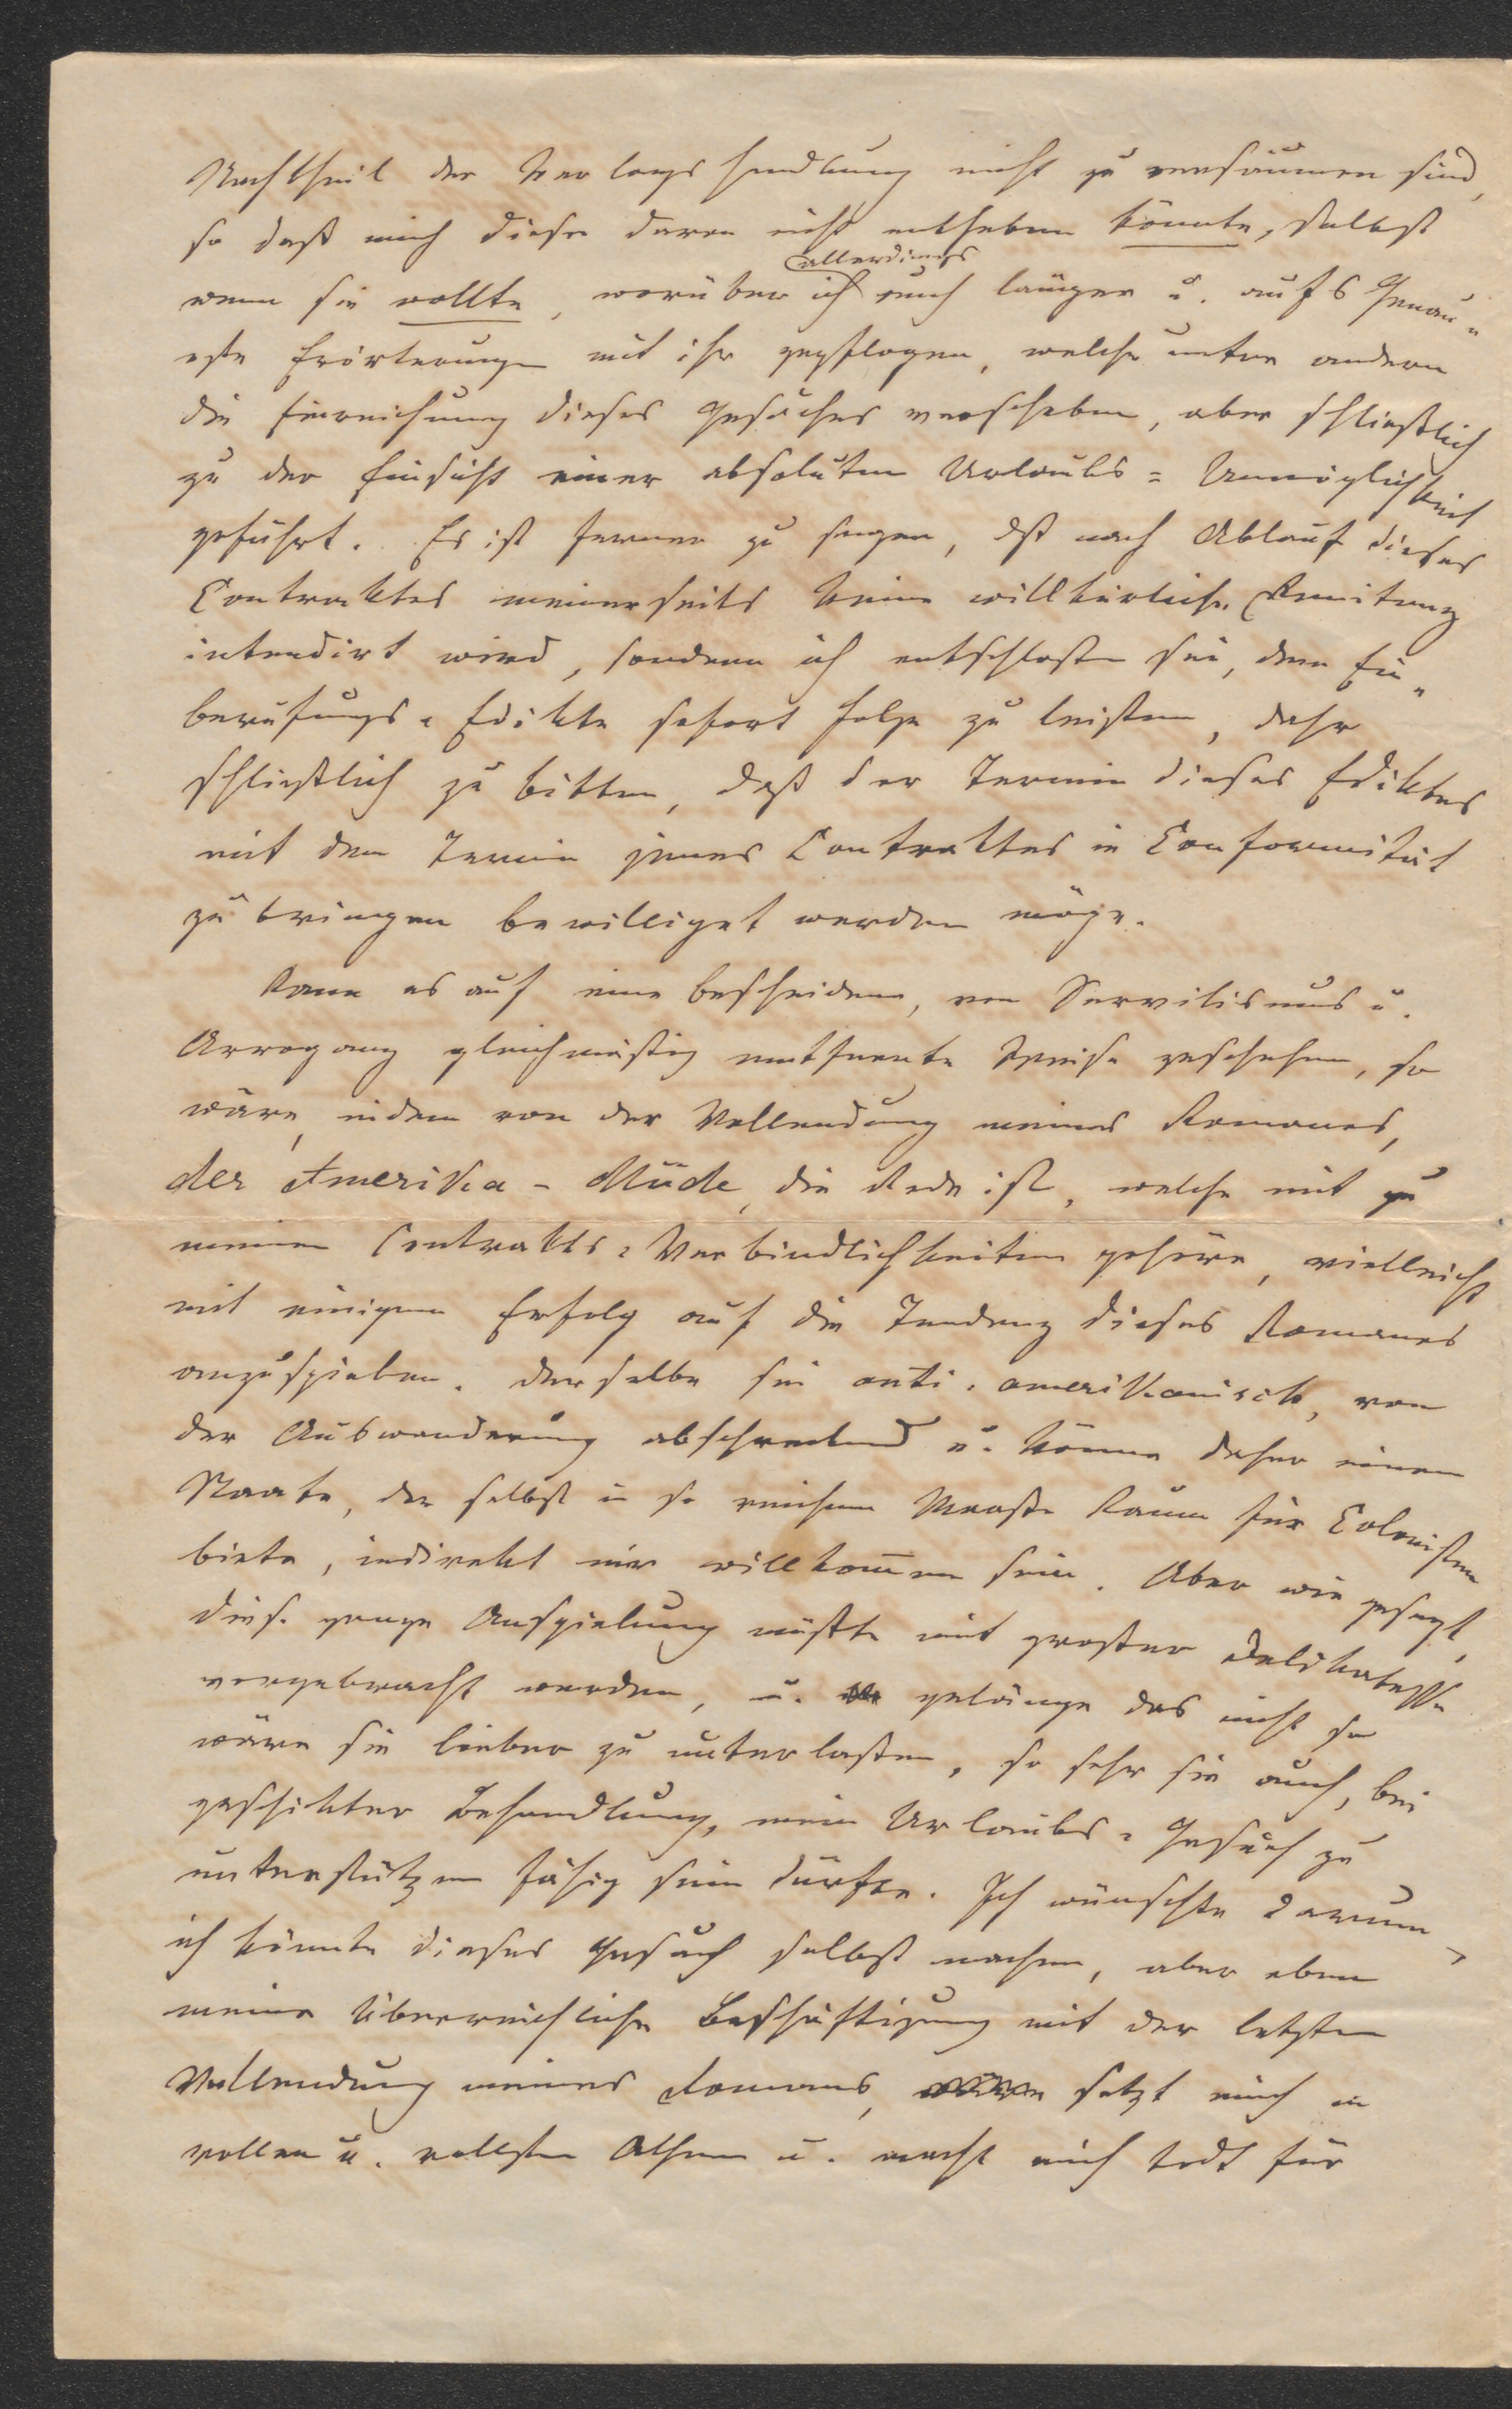 Nachtheil der Verlagshandlung nicht zu versäumen sind,
so daß mich diese davon nicht entheben könnte, selbst
wenn sie wollte, worüber ich allerdings auch länger u. aufs Genau=
este Erörterungen mit ihr gepflogen, welche unter andern
die Einreichung dieses Gesuches verschoben, aber schließlich
zu der Einsicht einer absoluten Urlaubs=Unmöglichkeit
geführt. Es ist ferner zu sagen, dß nach Ablauf dieses
Contraktes meinerseits keine willkürliche
intendirt wird, sondern ich entschlossen sei, dem Ein=
berufungs=Edikte sofort Folge zu leisten, daher
schließlich zu bitten, daß der Termin dieses Ediktes
mit dem Termin jenes Contraktes in Conformität
zu bringen bewilliget werden möge.
Kann es auf eine bescheidene, von Servilismus u.
Arroganz gleichmäßig entfernte Weise geschehen, so
wäre, indem von der Vollendung meines Romanes,
der Amerika-Müde, die Rede ist, welche mit zu
meinen Contrakts=Verbindlichkeiten gehöre, vielleicht
mit einigem Erfolg auf die Tendenz dieses Romanes
anzuspielen. Derselbe sei anti=amerikanisch, von
der Auswanderung abschreckend u. könne daher einem
Staate, der selbst in so reichem Maaße Raum für Colonisten
biete, indirekt nur willkom̅en sein. Aber wie gesagt,
diese ganze Anspielung müßte mit großer Delikatesse
vorgebracht werden, u. gelänge das nicht so
wäre sie lieber zu unterlassen, so sehr sie auch, bei
geschickter Behandlung, mein Urlaubs=Gesuch zu
unterstützen fähig sein dürfte. Ich wünschte darum,
ich könnte dieses Gesuch selbst machen, aber eben
meine überreichliche Beschäftigung mit der letzten
Vollendung meines Romans, setzt mich in
vollen u. vollsten Athem u. macht mich todt für